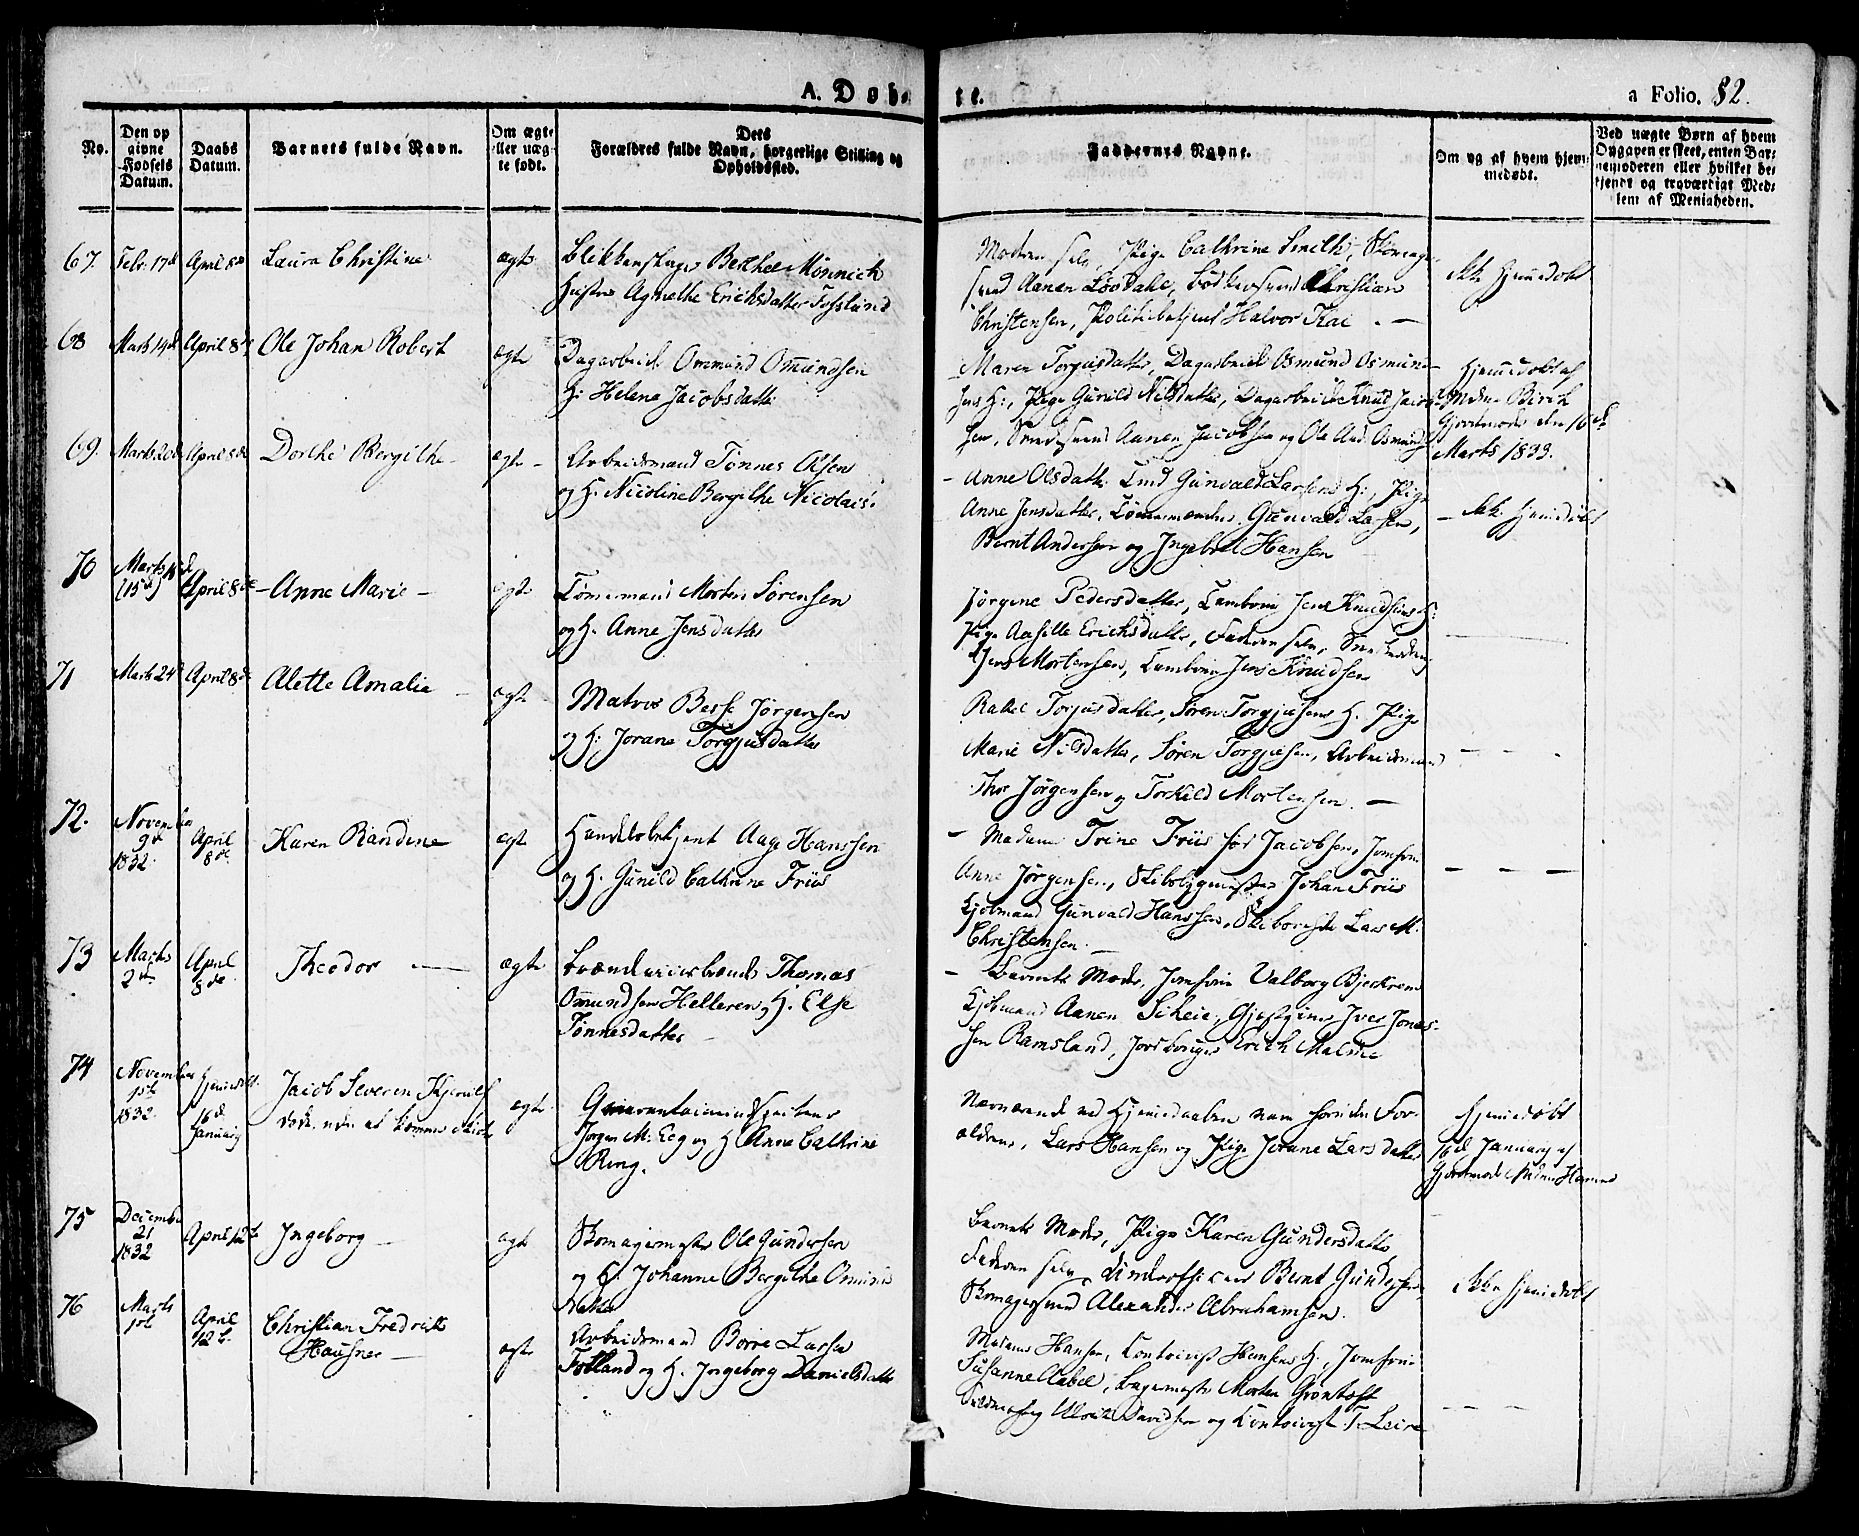 A. Døbte.
a Folio. 82.
No.
Den opgivne Fødsels Datum.
Daabs Datum.
Barnets fulde Navn.
Om ægte eller uægte født.
Dets Forældres fulde Navn, borgerlige Stilling og Opholdssted.
Faddernes Navne.
Om og af hvem hjemmedøbt.
Ved uægte Børn af hvem Opgaven er skeet, enten Barnemoderen eller hvilket bekjendt og troværdigt Medlem af Menigheden.
67. Febr. 17de April 8de Laura Christine ægte Blikkenslager Berthel Mønnich
Hustru Agnethe Ericksdatter Fosslund
Moderen selv, Pige Cathrine Smith, Skomager
svend Aanen Løvdahl, Bødkersvend Christian
Christensen, Politiebetjent Halvor Kai. —
ikke hjemmedøbt
68 Marts 14de April 8de Ole Johan Robert ægte Dagarbeider Ommund Omundsen
H: Helene Jacobsdatter
Maren Torgusdatter, Dagarbeider Osmund Osmund-
sens H:, Pige Gunild Nilsdatter, Dagarbeider Knud Jacob-
sen, Smedsvend Aanen Jacobsen og Ole And. Osmunds
Hjemmedøbt af
Mdme Birch
Gjordmoder den 16de
Marts 1833.
69. Marts 20de April 8de Dorthe Bergithe ægte – Arbeidsmand Tønnes Olsen
og H. Nicoline Bergithe Nicolais.
- Anne Olsdatter Gunvald Larsens H:, Pige
Anne Jensdatter, Tømmermændene Gunvald Larsen,
Bernt Andersen og Ingebret Hansen
– ikke hjemmedøbt
70 Marts
(15de) April 8de – Anne Marie – ægte Tømmermand Morten Sørensen
og H. Anne Jensdatter
Jørgine Pedersdatter, Jens Knudsens H:
Pige Aasille Ericksdatter, Faderen selv,
Jens Mortensen, Jens Knudsen
71 Marts 24de April 8de Alette Amalia – ægte Matros Jørgensen
og H: Jorane Torgjusdatter
Rakel Torjusdatter, Søren Torgjusens H. Pige
Marie Nilsdatter, Søren Torgjusen, Arbeidsmand
Thor Jørgensen og Torkild Mortensen. —
72. November
9de
1832. April
8de Karen Randine ægte Aage Hanssen
og H. Gunild Cathrine Friis
– Madame Trine Friis før Jacobsen, Jomfru
Anne Jørgensen, Skibsbygmester Johan Friis
Kjøbmand Gunvald Hanssen, Lars M.
Christensen. —
73 Marts
2de April
8de Theodor — ægte Thomas
Omundsen Helleren, H. Else
Tønnesdatter –
– Barnets Moder, Jomfru Valborg Bjerkrem
Kjøbmand Aanen Scheie, Iver Jonas-
sen Ramsland, Erich Malme
74 November
1ste
1832. Hjemmedøbt
16de
January Jacob Severin
døde uden at komme i Kirke ægte
Jørgen M: Eeg og H Anne Cathrine
Ring.
Nærværende ved Hjemmedaaben vare foruden For-
ældrene, Lars Hansen og Pige Jorane Larsdatter
Hjemmedøbt
16de January af
Gjordmoder Mdme Hansen
75 December
21
1832 April 12te Ingeborg – ægte Skomagermester Ole Gundersen
og H: Johanne Bergithe Omunds
datter
Barnets Moder, Pige Karen Gundersdatter
Faderen selv, Underofficer Bernt Gundersen,
Skomagersvend Alexander Abrahamsen.
ikke hjemmedøbt
76 Marts
1ste April
12te Christian Fredrik
Hausner – ægte Arbeidsmand Borre Larsen
Fotland og H. Ingeborg Danielsdatter
Madame Hansen, Kontorist Hansens H., Jomfru
Susanne Aabel, Bagermester Morten Grøntoft
og Kontorist T. Leire